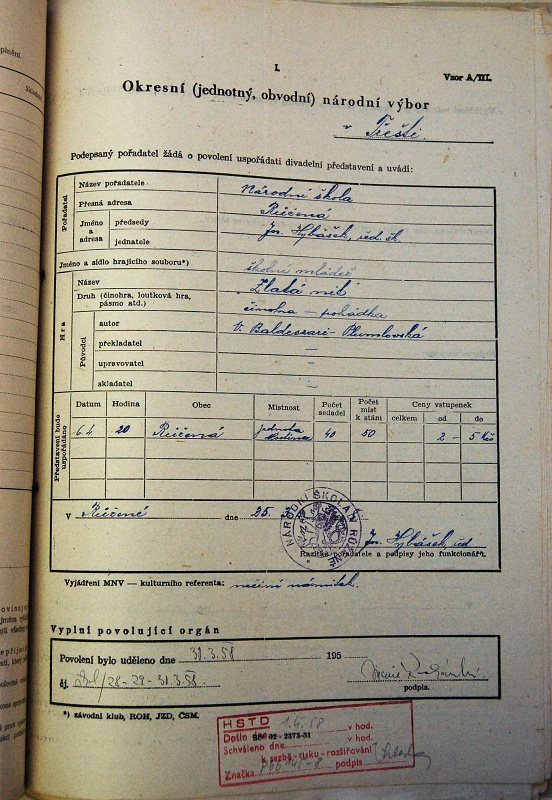 I.
Vzor A/III.
Okresní (jednotný, obvodní) národní výbor
v Třešti.
Podepsaný pořadatel žádá o povolení uspořádati divadelní představení a uvádí:
Pořadatel
Název pořadatele Národní škola
Přesná adresa Růžená
Jméno a adresa předsedy Jos. Hybášek, úd. šk.
jednatele
Jméno a sídlo hrajícího souboru*) školní mládež
Hra
Název „Zlatá nit“
Druh (činohra, loutková hra, pásmo atd.) činohra – pohádka
Původci
autor V. Baldessari - Plumlovská
překladatel —
upravovatel —
skladatel —
Představení bude uspořádáno
Datum Hodina Obec Místnost Počet sedadel Počet míst k stání Ceny vstupenek celkem od do
6.4. 20 Růžená jednota 40 50 2 – 5 Kčs
V Růžené dne 25.
NÁRODNÍ ŠKOLA V RŮŽENÉ
Jos. Hybášek, úd
Razítko pořadatele a podpisy jeho funkcionářů.
Vyjádření MNV — kulturního referenta: nečiní námitek.
Vyplní povolující orgán
Povolení bylo uděleno dne 31.3.58 195
čj. /28-29-31.3.58
podpis.
*) závodní klub, ROH, JZD, ČSM.
HSTD
Došlo 1.4.58 v hod.
02 - 2373-51
Schváleno dne v hod.
k sazbě - tisku - rozšiřování
Značka podpis